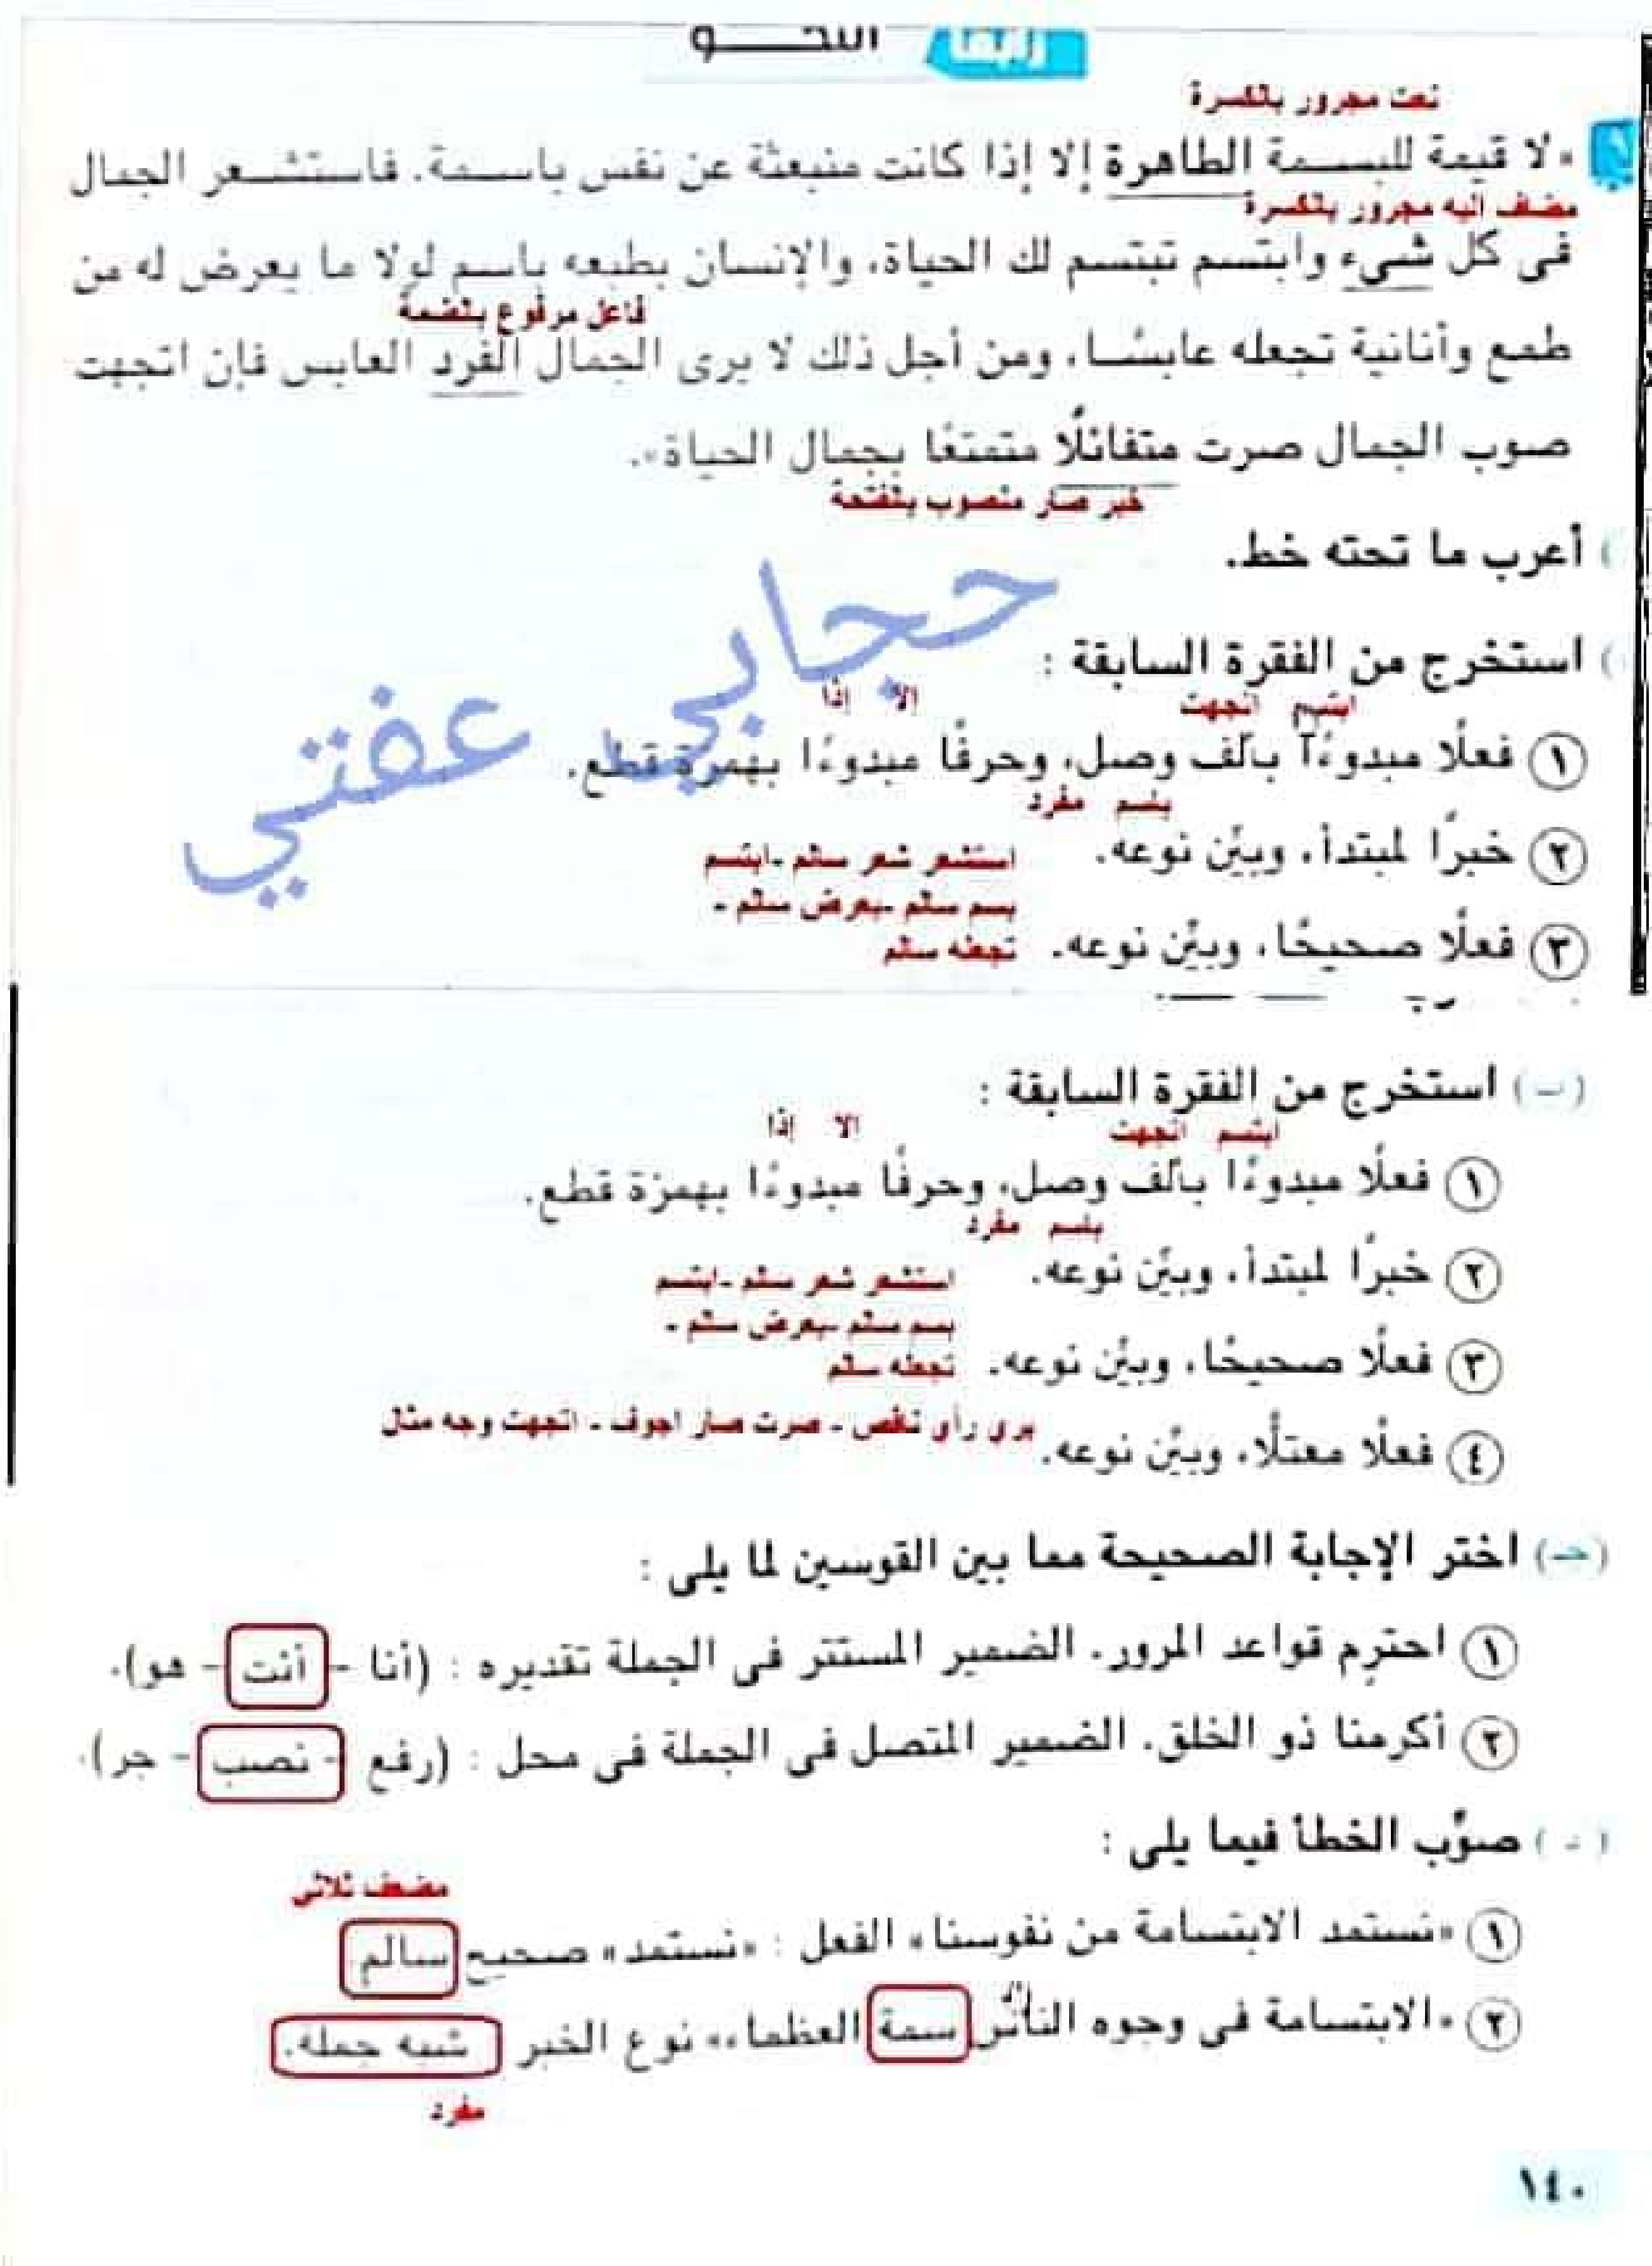 رابعًا النحـــو
نعت مجرور بالكسرة
«لا قيمة للبسمة الطاهرة إلا إذا كانت منبعثة عن نفس باسمة. فاستشعر الجمال
مضاف اليه مجرور بالكسرة
فى كل شىء وابتسم تبتسم لك الحياة، والإنسان بطبعه باسم لولا ما يعرض له من
فاعل مرفوع بالضمة
طمع وأنانية تجعله عابسًا، ومن أجل ذلك لا يرى الجمال الفرد العابس فإن اتجهت
صوب الجمال صرت متفائلًا متمتعًا بجمال الحياة».
خبر صار منصوب بالفتحة
أعرب ما تحته خط.
استخرج من الفقرة السابقة :
ابتسم اتجهت الا إذا
١ فعلًا مبدوءًا بألف وصل، وحرفًا مبدوءًا بهمزة قطع.
باسم مفرد
٢ خبرًا لمبتدأ، وبيِّن نوعه. استشعر شعر سالم -ابتسم
بسم سالم -يعرض سالم -
٣ فعلًا صحيحًا، وبيِّن نوعه. تجعله سالم
حجابي عفتي
(ب) استخرج من الفقرة السابقة :
ابتسم اتجهت الا إذا
١ فعلًا مبدوءًا بألف وصل، وحرفًا مبدوءًا بهمزة قطع.
باسم مفرد
٢ خبرًا لمبتدأ، وبيِّن نوعه. استشعر شعر سالم -ابتسم
بسم سالم -يعرض سالم -
٣ فعلًا صحيحًا، وبيِّن نوعه. تجعله سالم
يري رأي ناقص - صرت صار اجوف - اتجهت وجه مثال
٤ فعلًا معتلًّا، وبيِّن نوعه.
(جـ) اختر الإجابة الصحيحة مما بين القوسين لما يلى :
١ احترم قواعد المرور. الضمير المستتر فى الجملة تقديره : (أنا - أنت - هو).
٢ أكرمنا ذو الخلق. الضمير المتصل فى الجملة فى محل : (رفع - نصب - جر).
(د) صوِّب الخطأ فيما يلى :
مضعف ثلاثي
١ «نستمد الابتسامة من نفوسنا» الفعل : «نستمد» صحيح سالم
٢ «الابتسامة فى وجوه الناس سمة العظماء» نوع الخبر شبه جملة.
مفرد
١٤٠